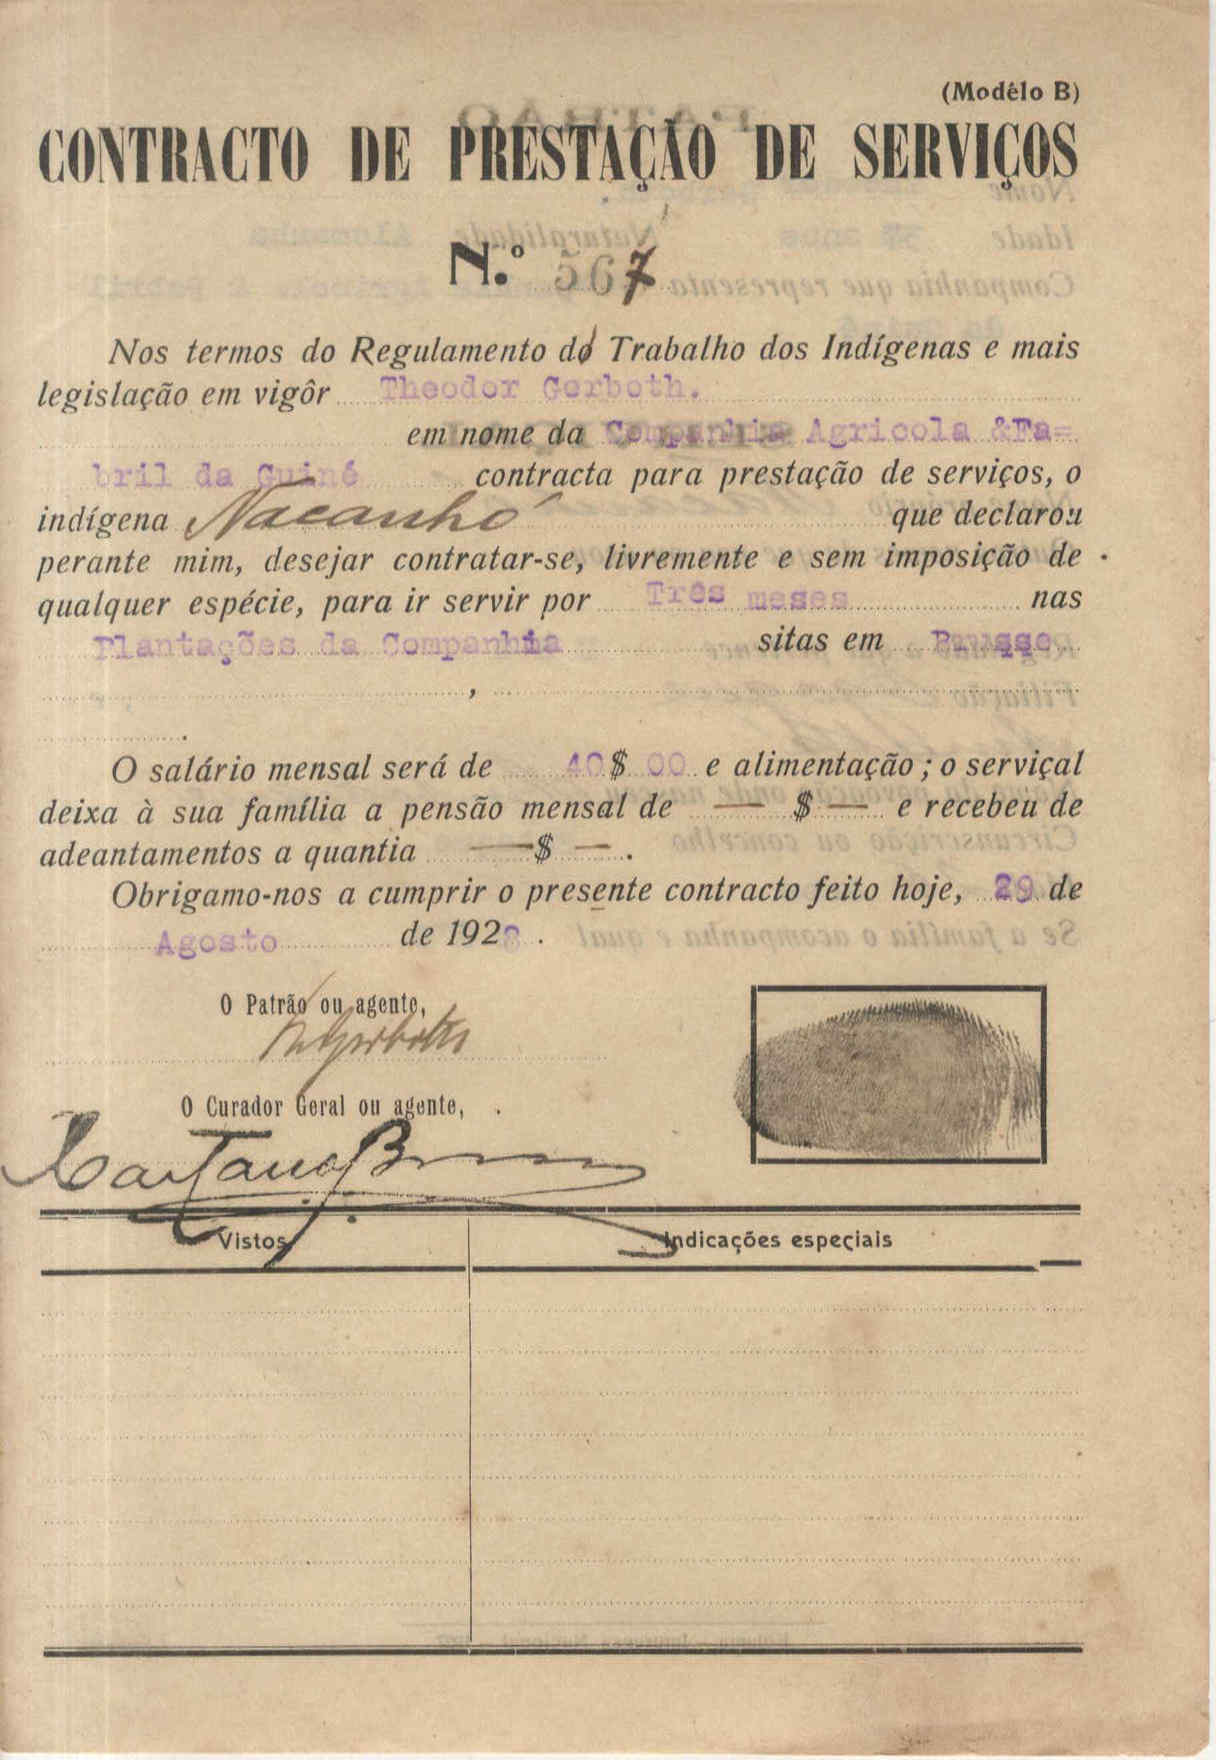 (Modêlo B)
CONTRACTO DE PRESTAÇÃO DE SERVIÇOS
N.º 567
Nos termos do Regulamento do Trabalho dos Indígenas e mais
legislação em vigôr Theodor Gerboth.
em nome da Companhia Agricola &Fa=
bril da Guiné contracta para prestação de serviços, o
indígena Nacanhó que declarou
perante mim, desejar contratar-se, livremente e sem imposição de
qualquer espécie, para ir servir por Três meses nas
Plantações da Companhia sitas em
O salário mensal será de 40$00 e alimentação; o serviçal
deixa à sua família a pensão mensal de — $ — e recebeu de
adeantamentos a quantia — $ — .
Obrigamo-nos a cumprir o presente contracto feito hoje, 29 de
Agosto de 1928.
O Patrão ou agente,
O Curador Geral ou agente,
Vistos Indicações especiais